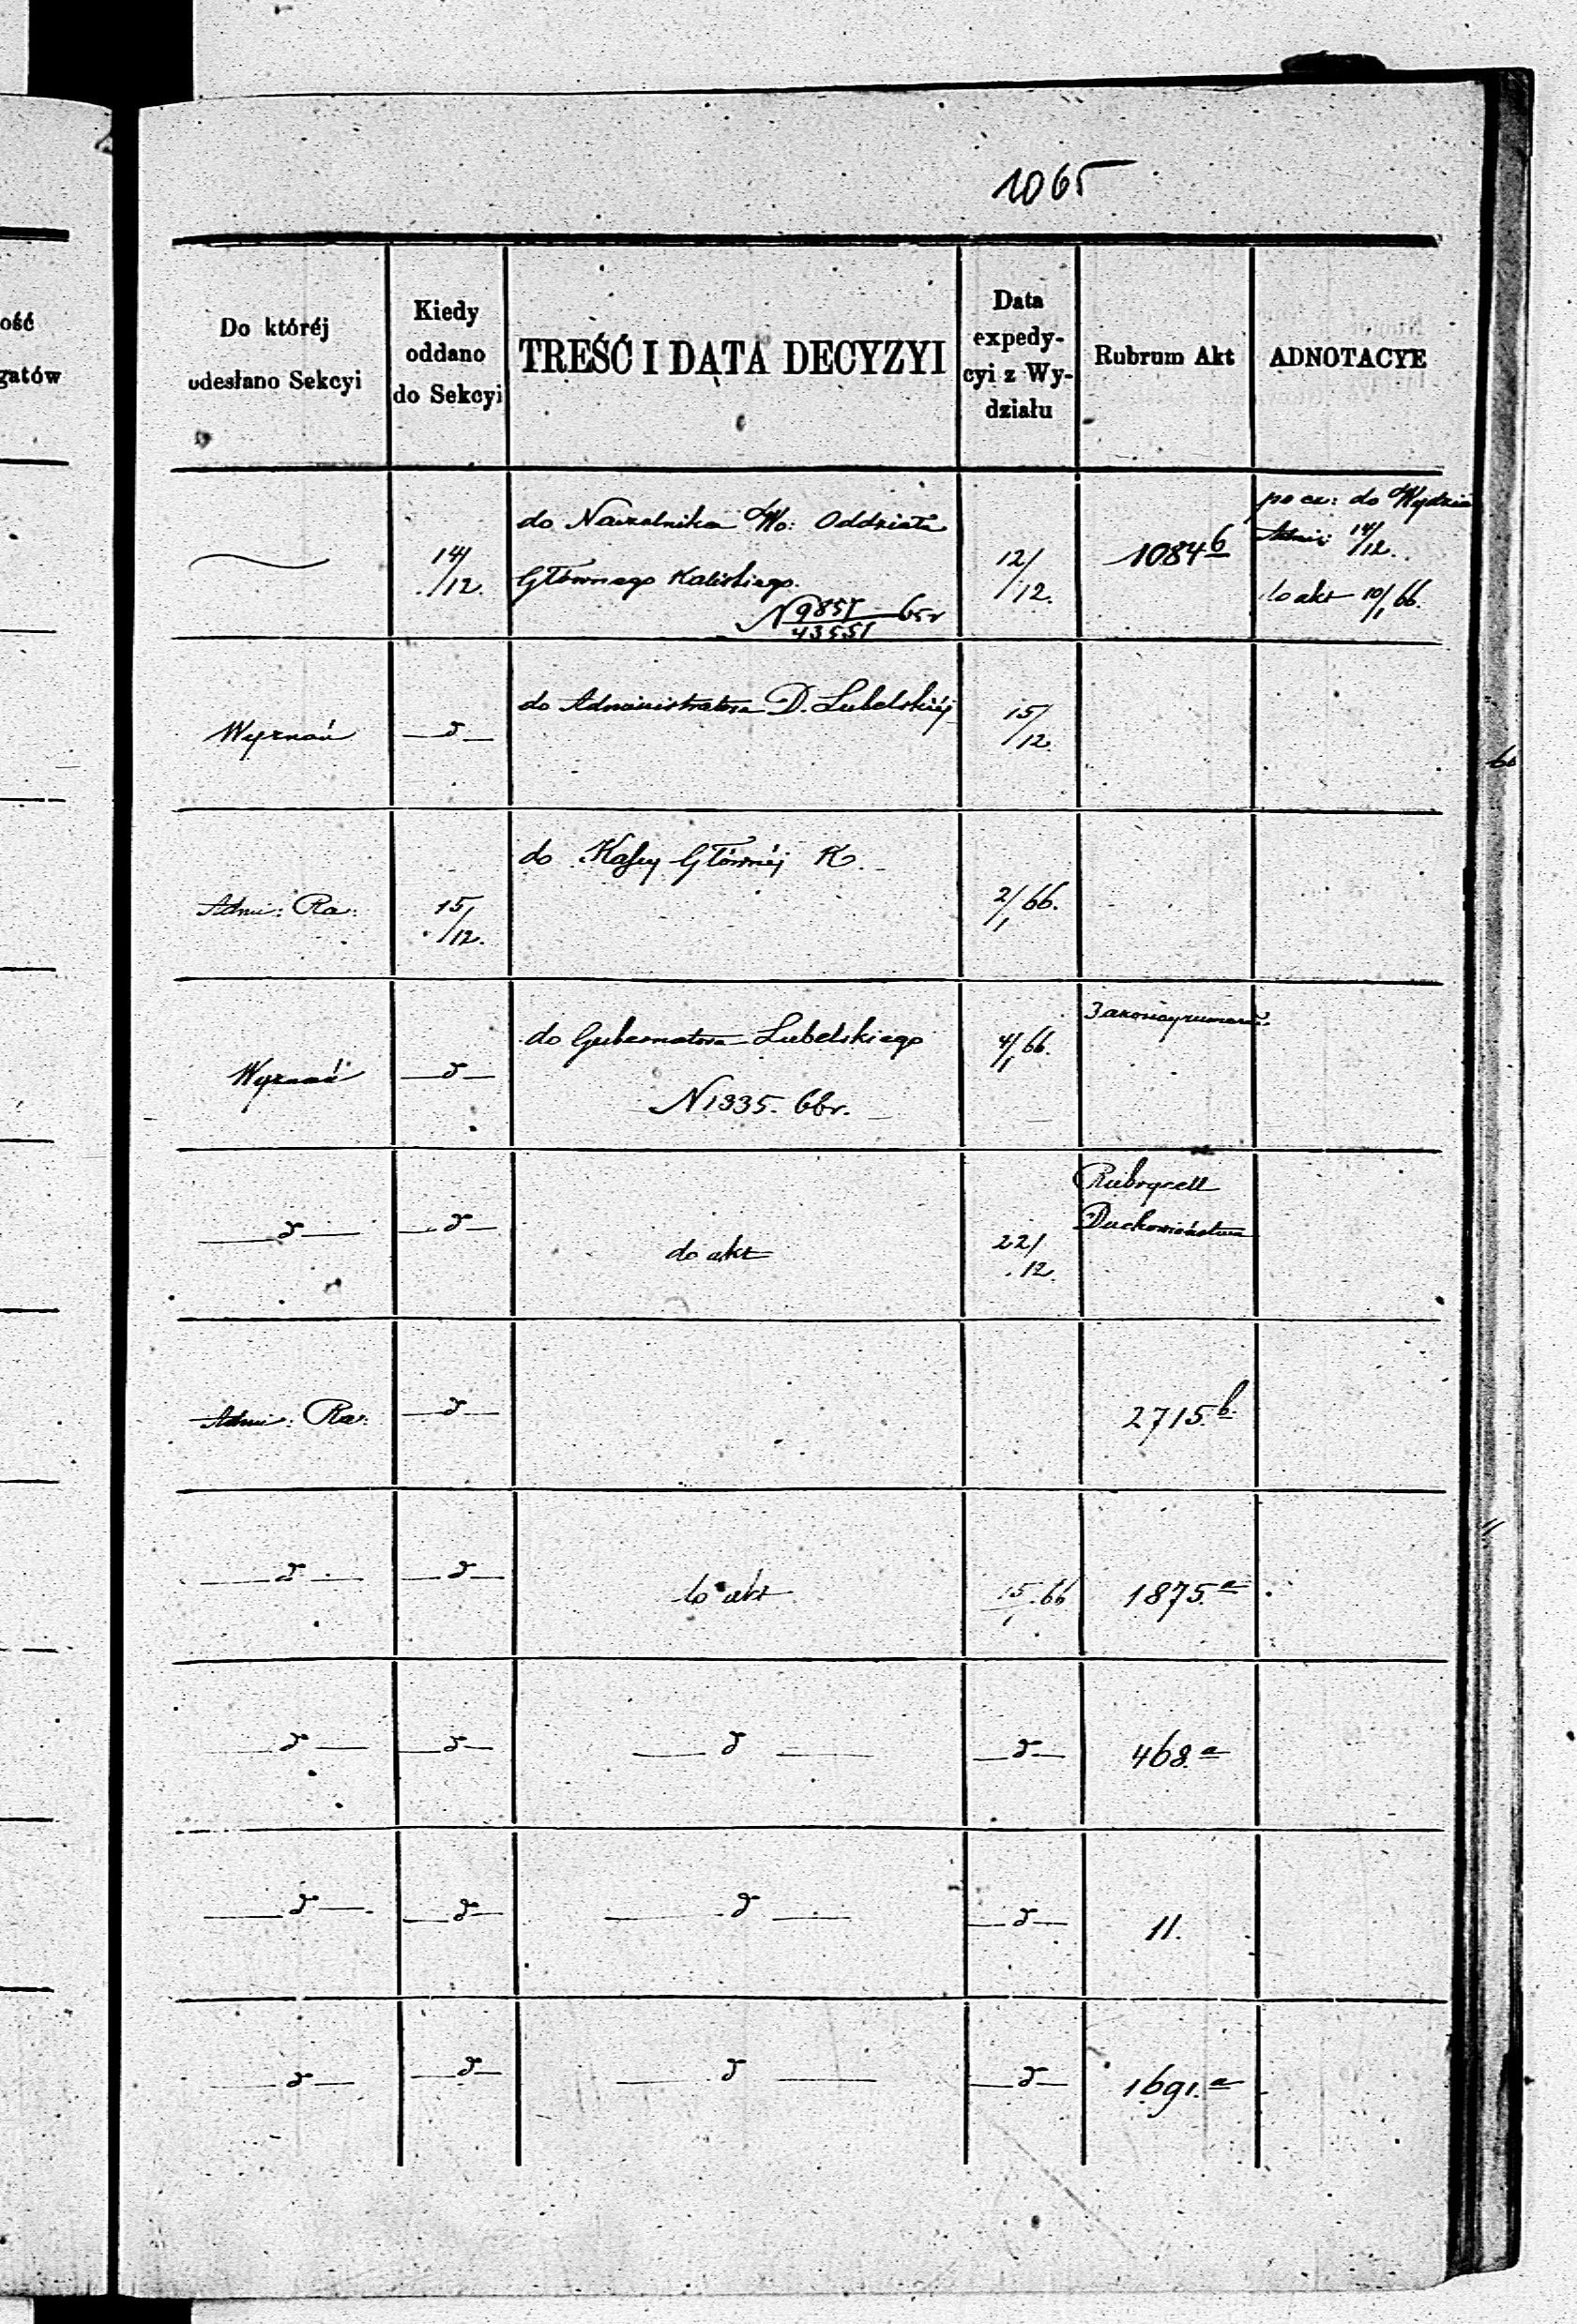 1065
ość
gatów
Do któréj
odesłano Sekcyi
Kiedy
oddano
do Sekcyi
TREŚĆ I DATA DECYZYI
Data
expedy-
cyi z Wy-
działu
Rubrum Akt
ADNOTACYE
14/12.
do Naczelnika Wo: Oddziału
Głównego Kaliskiego.
N 9857/43551 65r
12/12.
1084 b
do Wydzia
Admi: 14/12.
do akt 10/1 66.
Wyznań
—d—
do Administratora D. Lubelskiéj
15/12
Admi: Ra:
15/12.
do Kassy Głównéj K.
2/1 66.
Wyznań
—d—
do Gubernatora Lubelskiego
N 1335. 66r.
4/1 66.
—d—
—d—
do akt
22/12
Rubrycell
Duchowieństwa
Admi: Ra:
—d—
2715. b.
—d—
—d—
do akt
15/1 66
1875. a
—d—
—d—
—d—
—d—
468. a
—d—
—d—
—d—
—d—
11.
—d—
—d—
—d—
—d—
1691. a